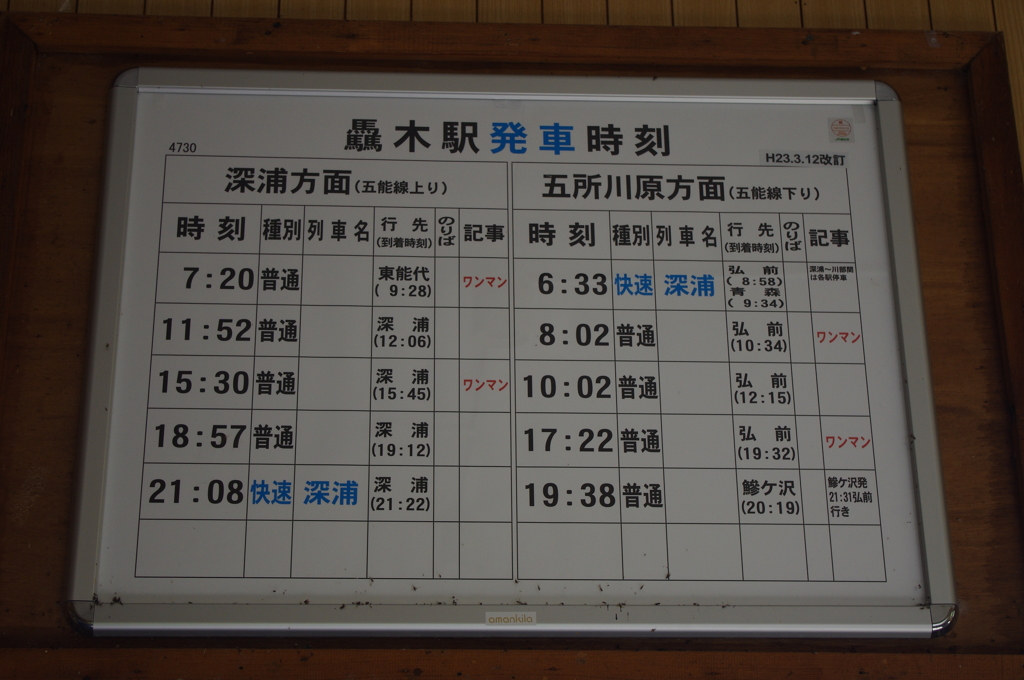 轟木駅発車時刻
4730
H23.3.12改訂
深浦方面(五能線上り)
時刻 種別 列車名 行先(到着時刻) のりば 記事
7:20 普通 東能代(9:28) ワンマン
11:52 普通 深浦(12:06)
15:30 普通 深浦(15:45) ワンマン
18:57 普通 深浦(19:12)
21:08 快速 深浦 深浦(21:22)
五所川原方面(五能線下り)
時刻 種別 列車名 行先(到着時刻) のりば 記事
6:33 快速 深浦 弘前(8:58) 青森(9:34) 深浦～川部間は各駅停車
8:02 普通 弘前(10:34) ワンマン
10:02 普通 弘前(12:15)
17:22 普通 弘前(19:32) ワンマン
19:38 普通 鰺ケ沢(20:19) 鰺ケ沢発21:31弘前行き